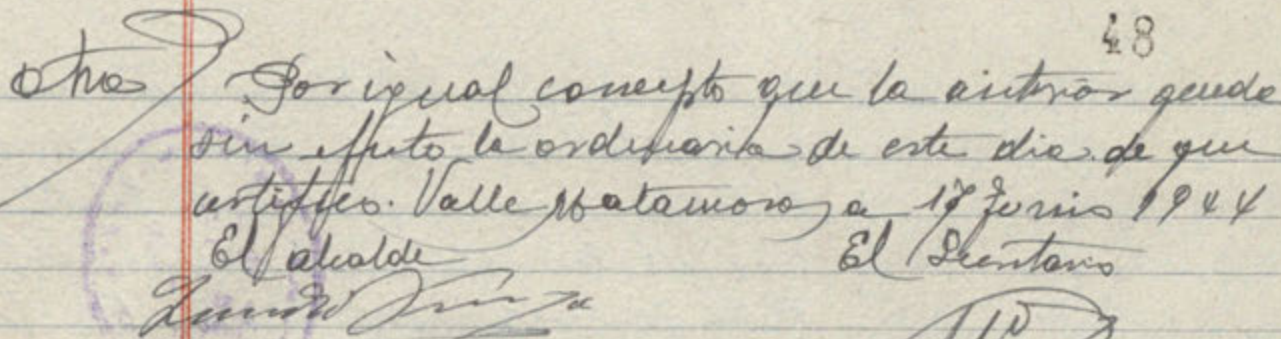 48
otra Por igual concepto que la anterior queda
sin efecto la ordinaria de este dia de que
certifico. Valle Matamoros a 17 Junio 1944
El alcalde El Secretario